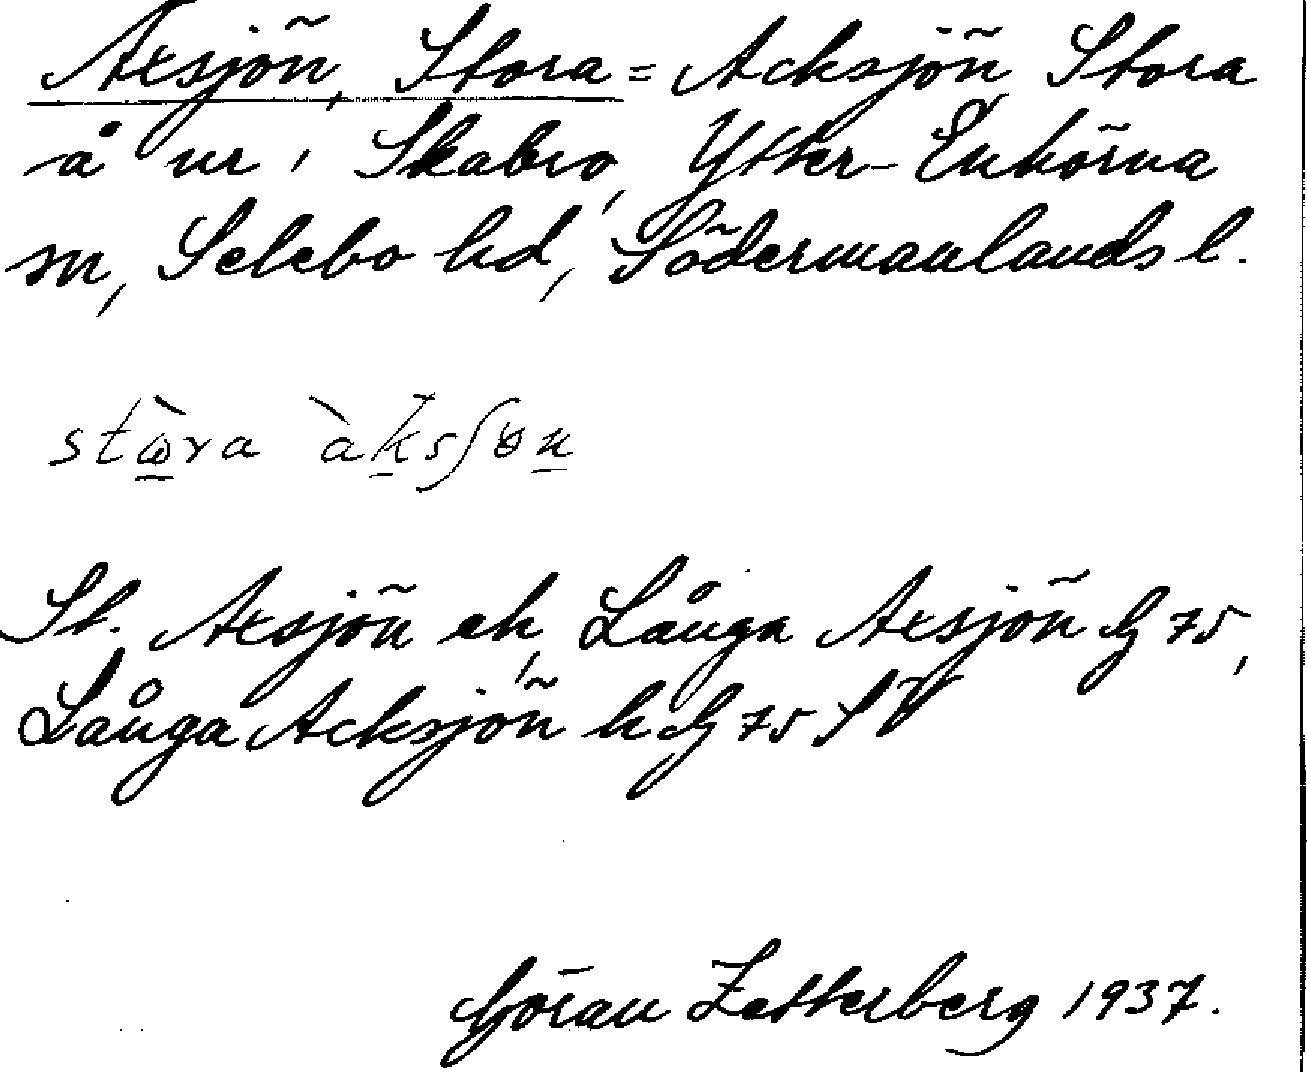 Axsjön, Stora = Acksjön Stora
å ur, Skabro, Ytter-Enhörna
sn, Selebo hd, Södermanlands l.
stὼ̠ra àk̠sʃɵn̠
St. Axsjön ek, Långa Axsjön G 75,
Långa Acksjön k G 75 SV
Göran Zetterberg 1937.